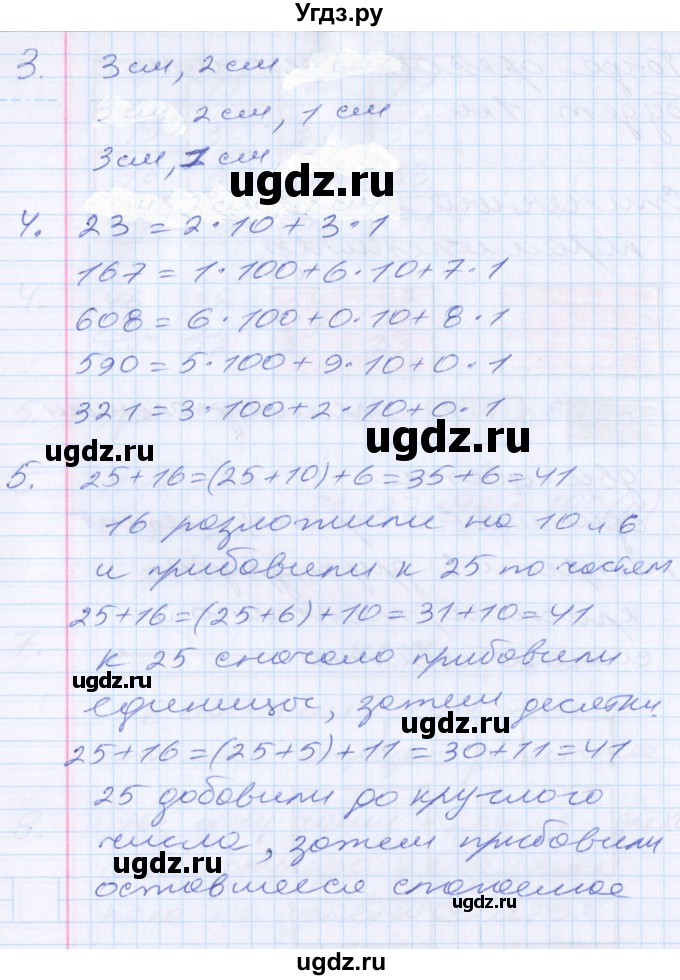 Угдз.ру
3. 3 см, 2 см
3 см, 2 см, 1 см
3 см, 1 см
ugdz.ru
4. 23 = 2 · 10 + 3 · 1
167 = 1 · 100 + 6 · 10 + 7 · 1
608 = 6 · 100 + 0 · 10 + 8 · 1
590 = 5 · 100 + 9 · 10 + 0 · 1
321 = 3 · 100 + 2 · 10 + 0 · 1
ugdz.ru
ugdz.ru
5. 25 + 16 = (25 + 10) + 6 = 35 + 6 = 41
16 разложили на 10 и 6
и прибавили к 25 по частям
25 + 16 = (25 + 6) + 10 = 31 + 10 = 41
к 25 сначало прибавили
ugdz.ru
единицы, затем десятки.
ugdz.ru
25 + 16 = (25 + 5) + 11 = 30 + 11 = 41
25 добавили до круглого
числа, затем прибавили
ugdz.ru
оставшееся слагаемое
ugdz.ru
ugdz.ru